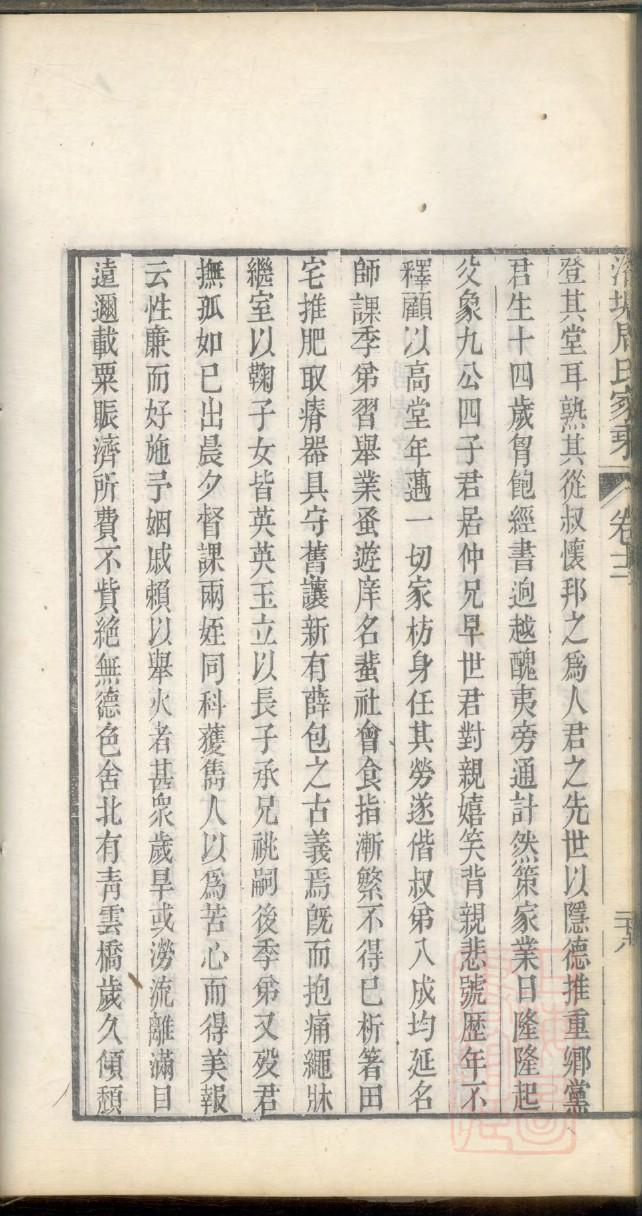 周氏家乘
卷十二
登其堂耳熟其從叔懷邦之爲人君之先世以隱德推重鄉黨
君生十四歲胷飽經書逈越醜夷旁通計然策家業日隆隆起
父象九公四子君居仲兄早世君對親嬉笑背親悲號歴年不
釋顧以高堂年邁一切家枋身任其勞遂偕叔弟入成均延名
師課季弟習舉業蚤遊庠名蜚社會食指漸繁不得已析箸田
宅推肥取瘠器具守舊讓新有薛包之古義焉旣而抱痛繩牀
繼室以鞠子女皆英英玉立以長子承兄祧嗣後季弟又歿君
撫孤如已出晨夕督課兩姪同科獲雋人以爲苦心而得美報
云性亷而好施予姻戚賴以舉火者甚衆歲旱或澇流離滿目
遠邇載粟賑濟所費不貲絶無德色舍北有靑雲橋歲久傾頹